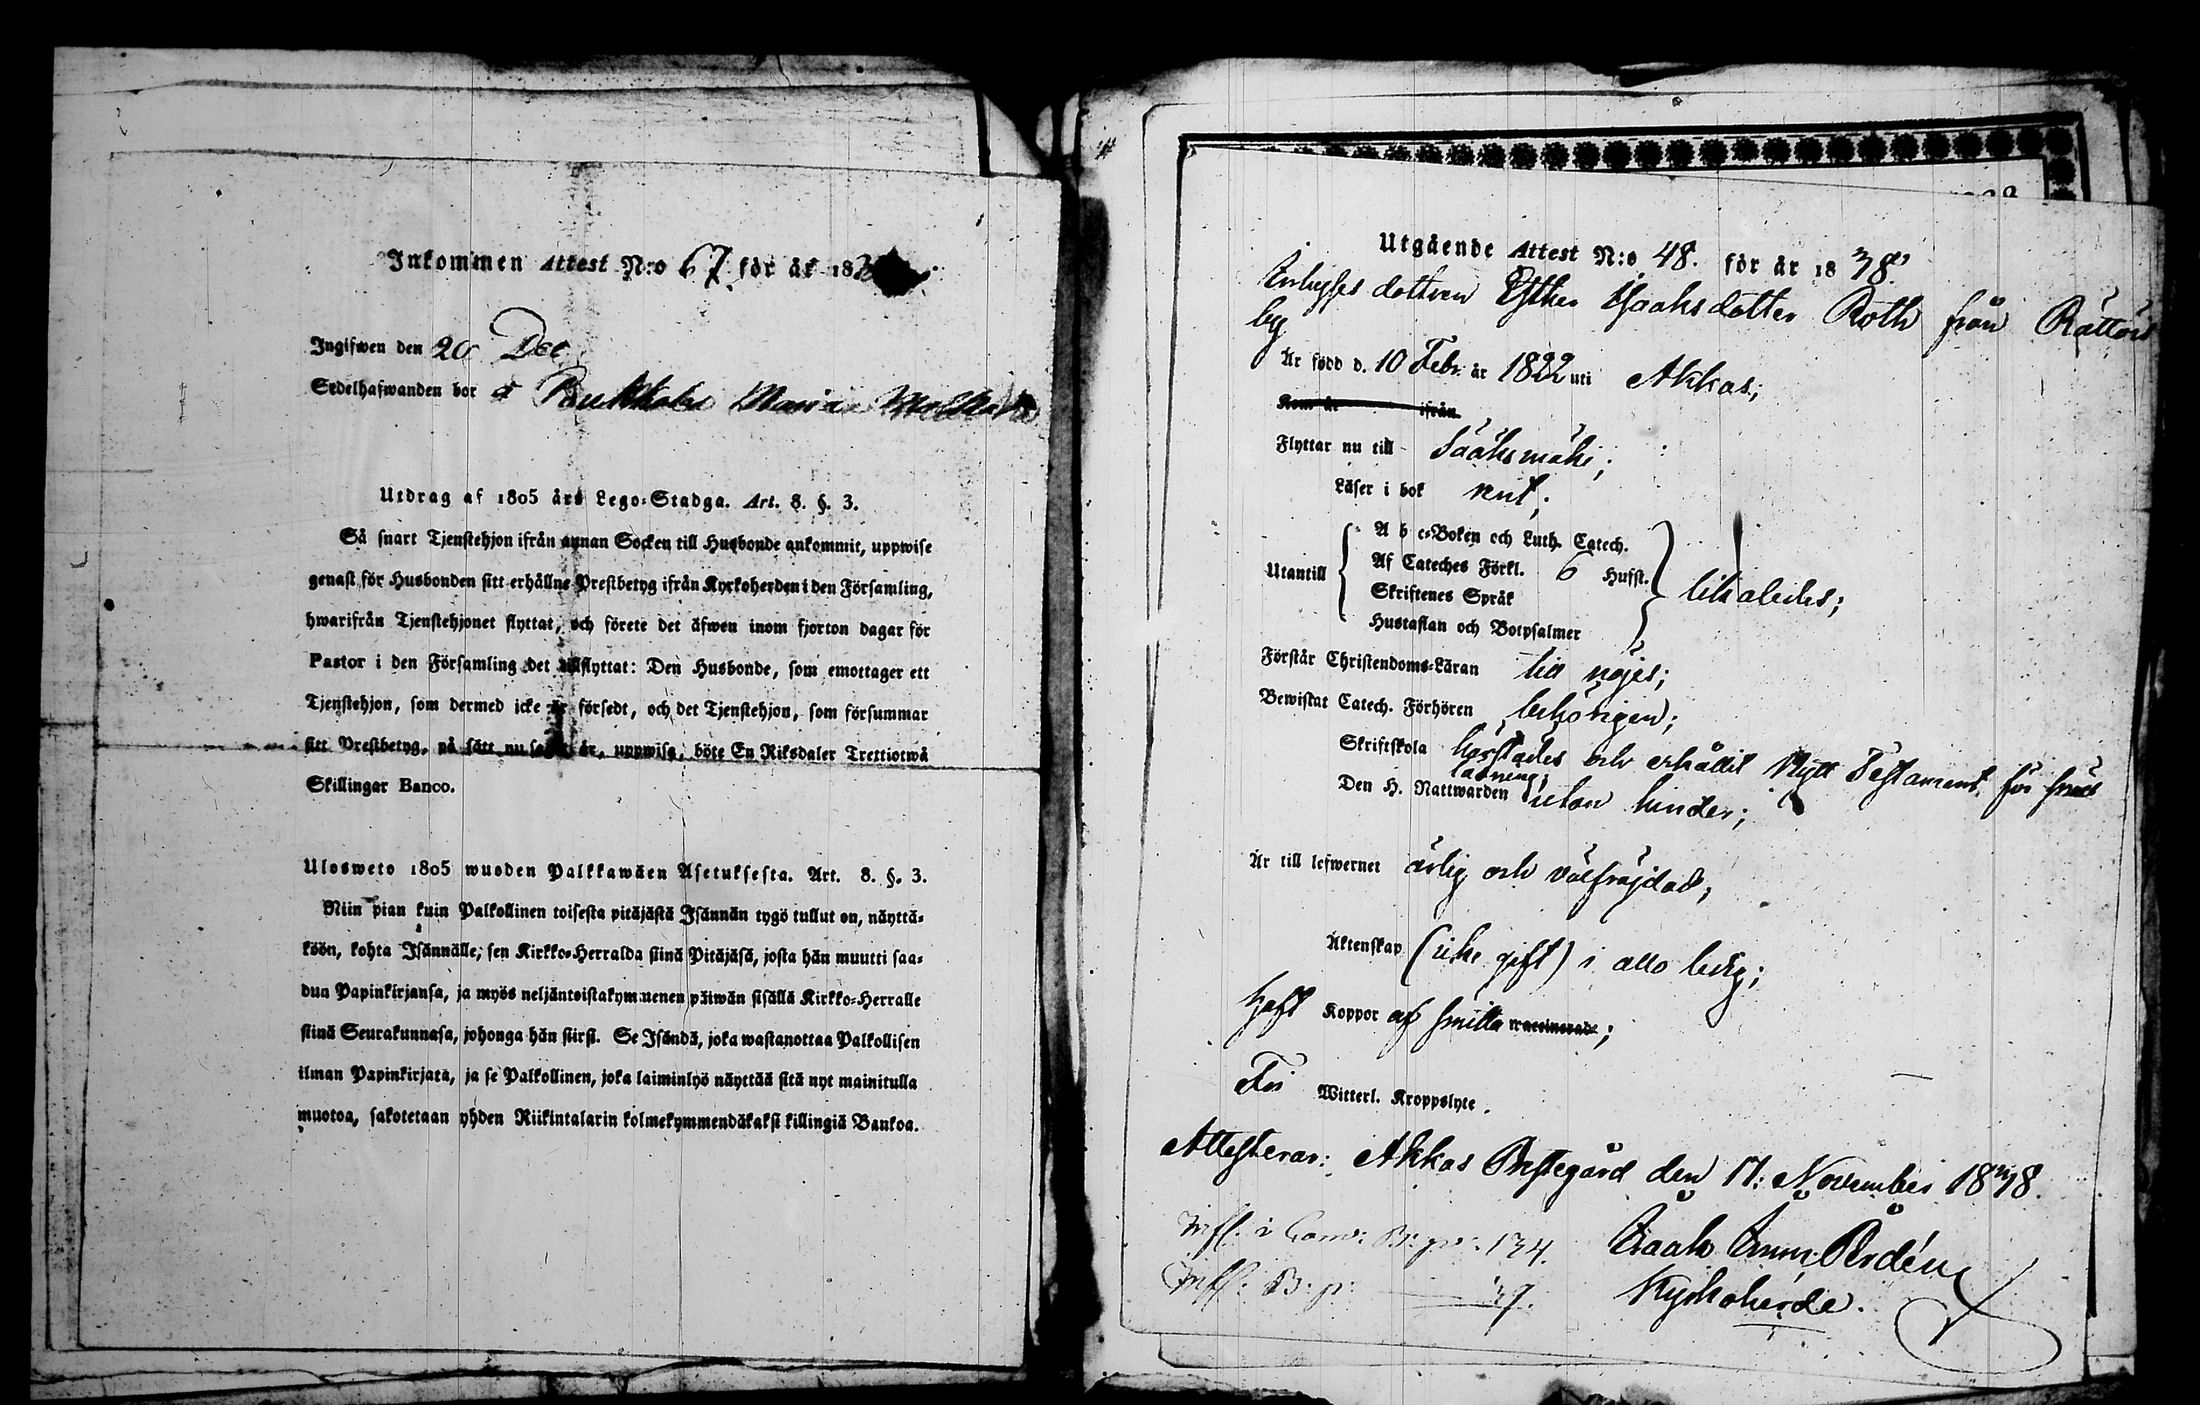 Inkommen Attest N:o 67 för år 183
Ingifwen den 20 Dec
Sedelhafwanden bor å Maria
Utdrag af 1805 års Lego-Stadga. Art. 8. §. 3.
Så snart Tjenstehjon ifrån annan Socken till Husbonde ankommit, uppwise
genast för Husbonden sitt erhållne Prestbetyg ifrån Kyrkoherden i den Församling,
hwarifrån Tjenstehjonet flyttat, och förete det äfwen inom fjorton dagar för
Pastor i den Församling det tillflyttat: Den Husbonde, som emottager ett
Tjenstehjon, som dermed icke är försedt, och det Tjenstehjon, som försummar
sitt Prestbetyg, på sätt nu sagt är, uppwisa, böte En Riksdaler Trettiotwå
Skillingar Banco.
Ulosweto 1805 wuoden Palkkawäen Asetuksesta. Art. 8. §. 3.
Niin pian kuin Palkollinen toisesta pitäjästä Isännän tygö tullut on, näyttä-
köön, kohta Isännälle, sen Kirkko-Herralda siinä Pitäjäsä, josta hän muutti saa-
dun Papinkirjansa, ja myös neljäntoistakymmenen päiwän sisällä Kirkko-Herralle
siinä Seurakunnasa, johonga hän siirsi. Se Isändä, joka wastanottaa Palkollisen
ilman Papinkirjata, ja se Palkollinen, joka laiminlyö näyttää sitä nyt mainitulla
muotoa, sakotetaan yhden Riikintalarin kolmekymmendäkaksi killingiä Bankoa.
Utgående Attest N:o 48. för år 1838
dottren Esther Isaaksdotter Roth från Rättöis
by
Är född d. 10 Febr. år 1822 uti Akkas;
Kom år ifrån
Flyttar nu till Sääksmäki;
Läser i bok rent;
A b c-Boken och Luth. Catech.
Utantill Af Cateches Förkl. 6 Hufst. likaledes;
Skriftenes Språk
Hustaflan och Botpsalmer
Förstår Christendoms-Läran till nöjes;
Bewistat Catech. Förhören behörigen;
Skriftskola bevistades och erhållit Nytt Testament för
läsning;
Den H. Nattwarden utan hinder;
Är till lefwernet ärlig och välfräjdad;
Äktenskap (icke gift) i allo ledig;
Haft Koppor af smitta vaccinerad;
Fri Witterl. Kroppslyte.
Attesterar: Akkas Prestegård den 17: November 1838.
Infl. i Comm: B: p: 134. Isaak Imm: Rodén
Infl: B: p: 37. Kyrkoherde.